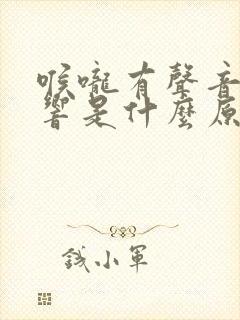 喉嚨有聲音
響是什麼原
錢小軍